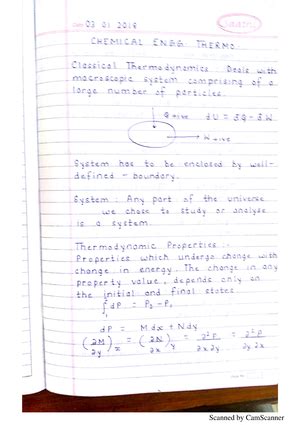 Date 03 01 2018
CHEMICAL ENGG THERMO
Classical Thermodynamics : Deals with
macroscopic system comprising of a
large number of particles.
Q +ive dU = δQ - δW
W +ive
System has to be enclosed by well-
defined - boundary.
System : Any part of the universe
we chose to study or analyse
is a system.
Thermodynamic Properties :-
Properties which undergo change with
change in energy. The change in any
property value, depends only on
the initial and final states.
∫dP = P₂ - P₁
dP = Mdx + Ndy
(∂M/∂y)x = (∂N/∂x)y = ∂²P/∂x∂y = ∂²P/∂y∂x
Scanned by CamScanner